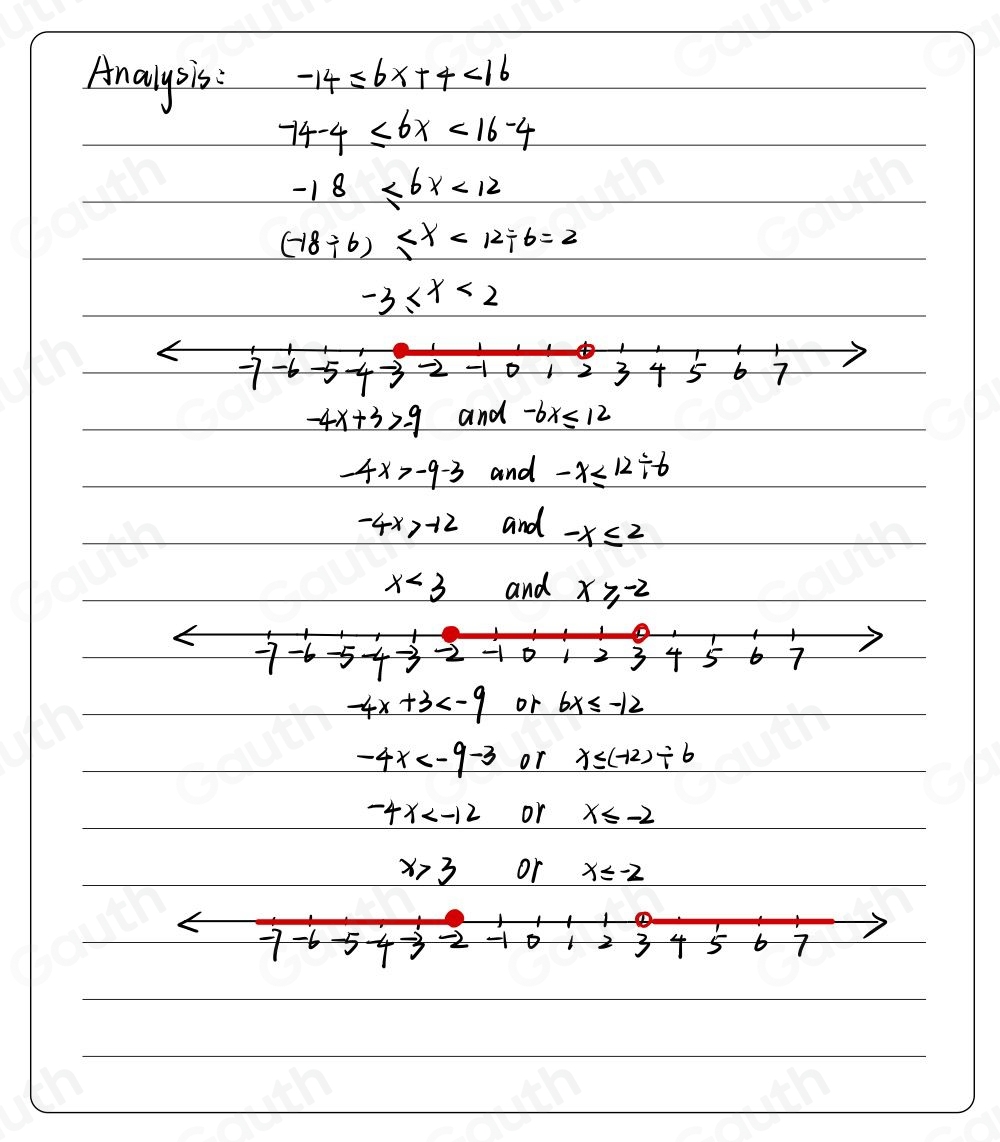 Analysis: -14 ≤ 6x + 4 < 16
-14-4 ≤ 6x < 16-4
-18 ≤ 6x < 12
(-18÷6) ≤ x < 12÷6=2
-3 ≤ x < 2
-7 -6 -5 -4 -3 -2 -1 0 1 2 3 4 5 6 7
-4x+3>-9 and -6x≤12
-4x>-9-3 and -x≤12÷6
-4x>-12 and -x≤2
x<3 and x≥-2
-7 -6 -5 -4 -3 -2 -1 0 1 2 3 4 5 6 7
-4x+3<-9 or 6x≤-12
-4x<-9-3 or x≤(-12)÷6
-4x<-12 or x≤-2
x>3 or x≤-2
-7 -6 -5 -4 -3 -2 -1 0 1 2 3 4 5 6 7